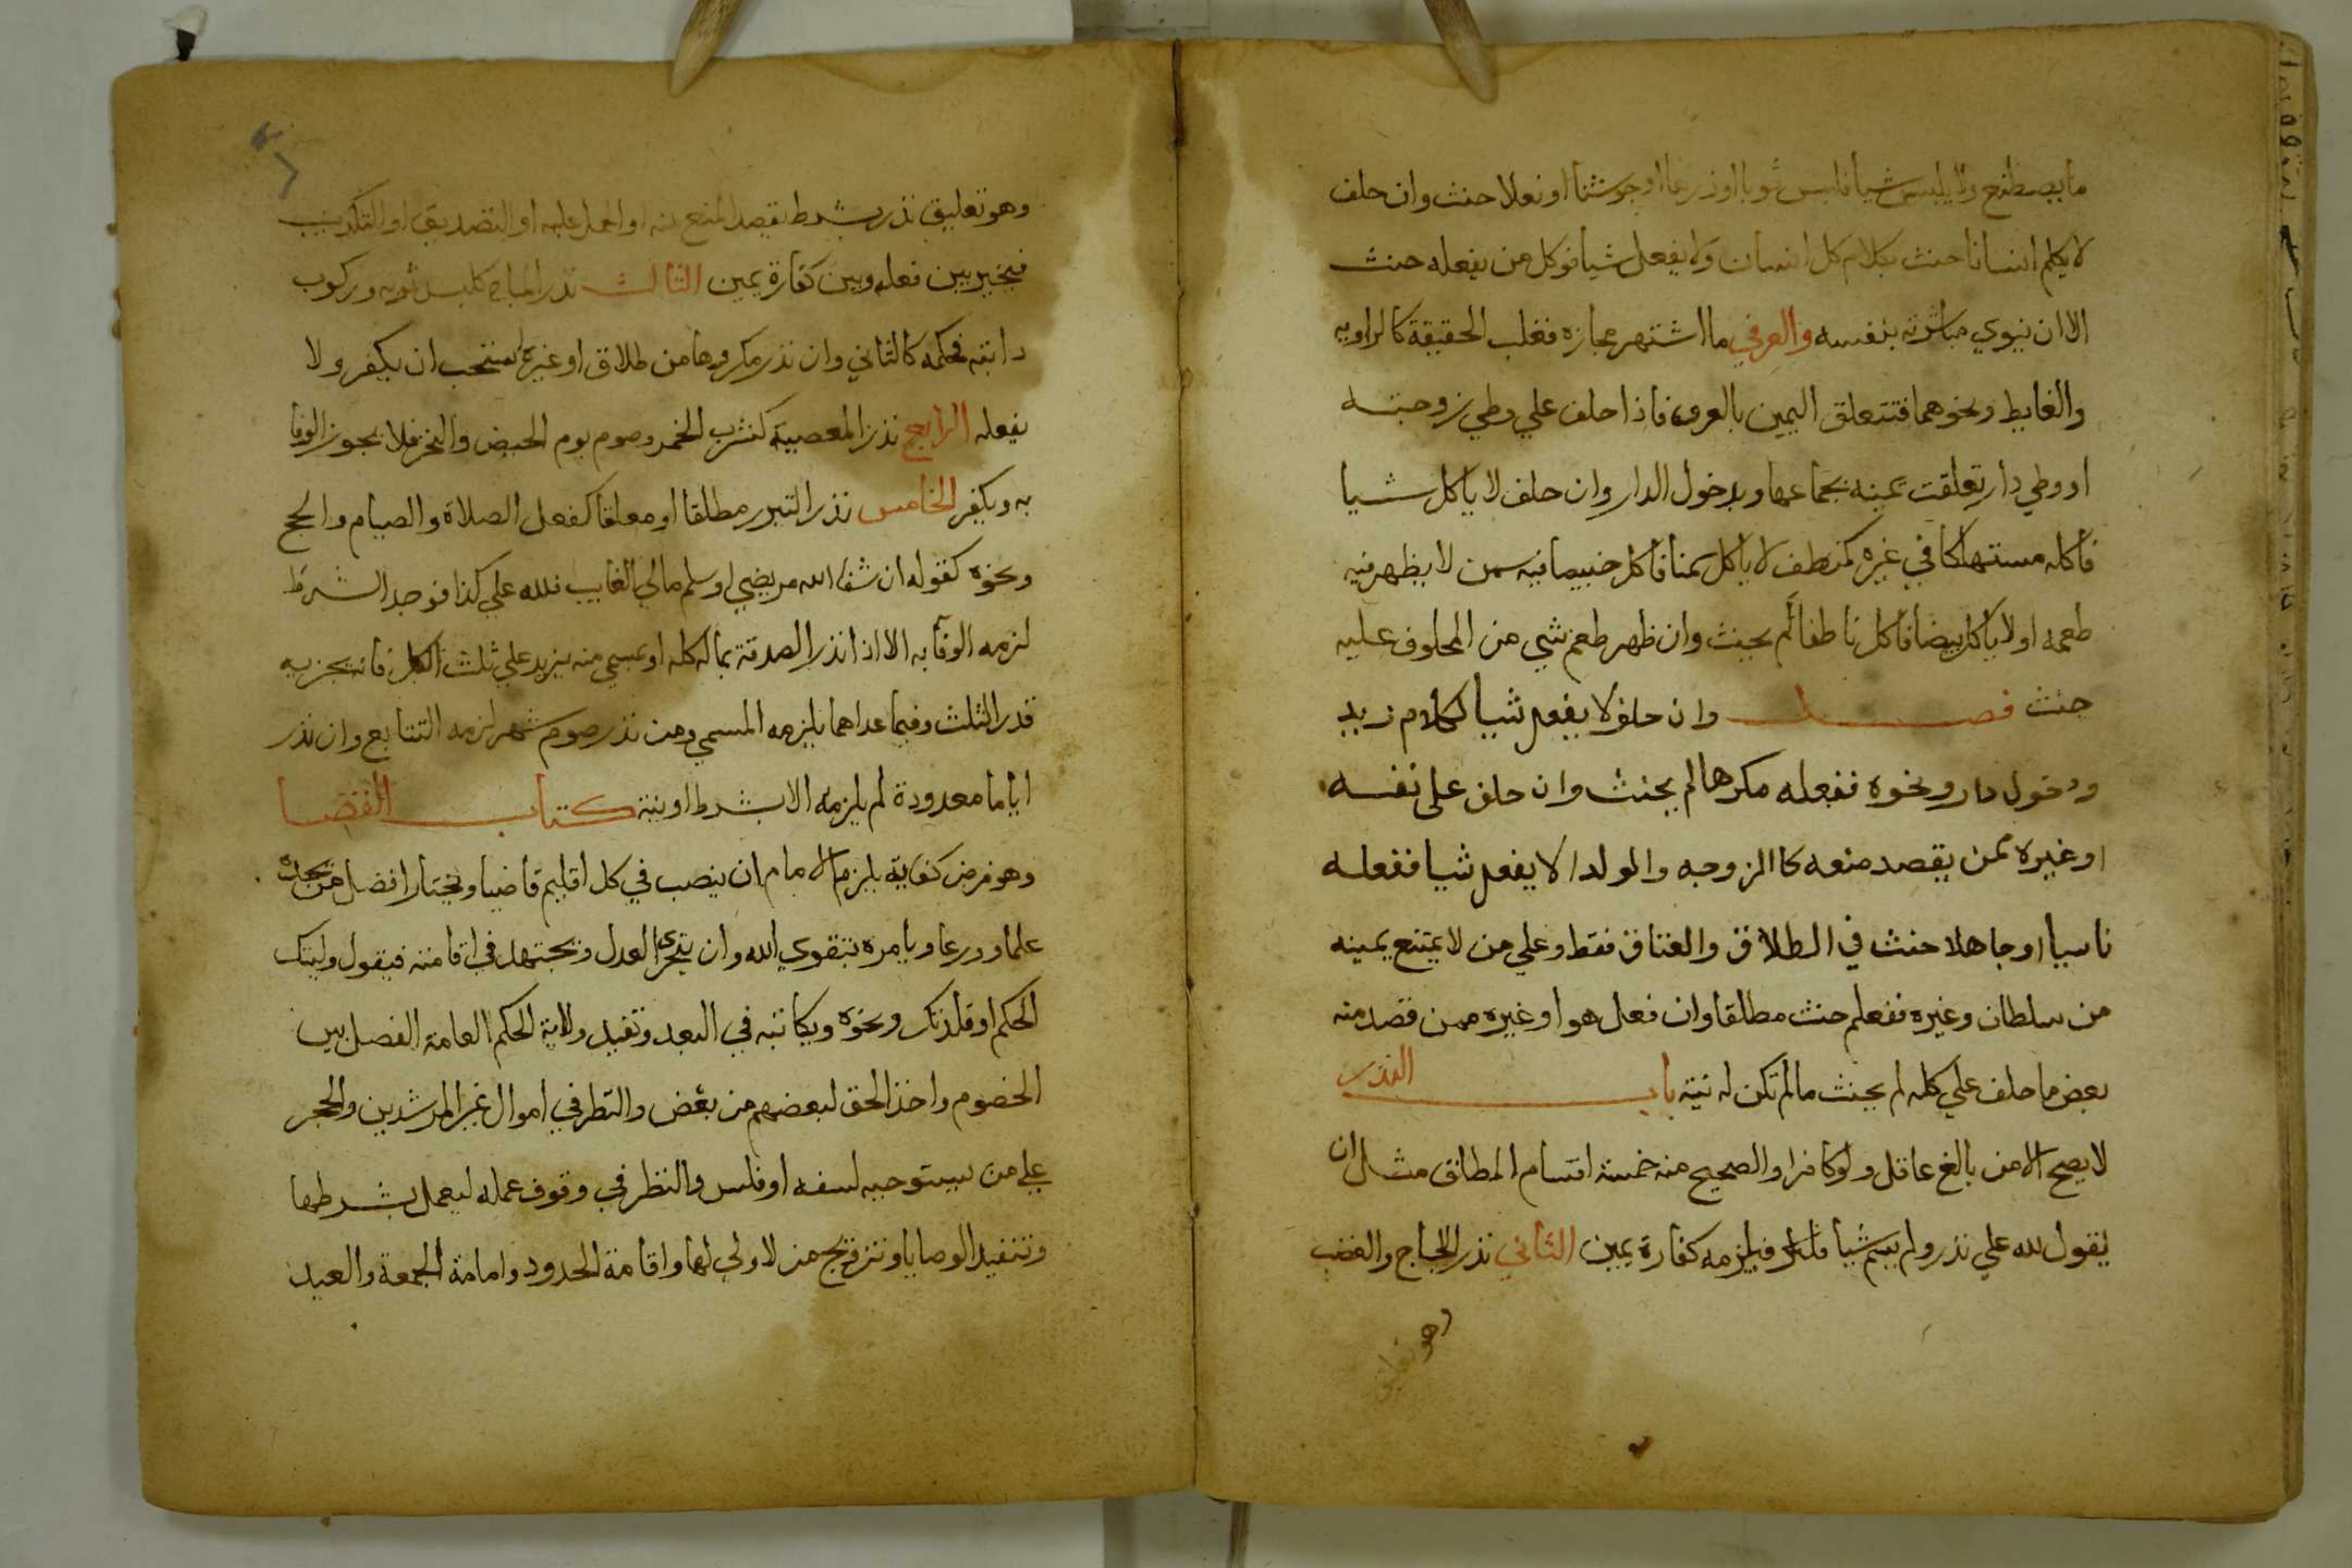 ما يصطبغ ولا يلبس شيا فلبس ثوبا او درعا او جوشنا او نعلا حنث وان حلف
لا يكلم انسانا حنث بكلام كل انسان ولا يفعل شيا فوكل من يفعله حنث
الا ان ينوي مباشرته بنفسه والعرفي ما اشتهر مجازه فغلب الحقيقة كالراويه
والغايط ونحوهما فتتعلق اليمين بالعرف فاذا حلف علي وطي زوجته
او وطي دار تعلقت يمينه بجماعها وبدخول الدار وان حلف لا ياكل شيا
فاكله مستهلكا في غيره كمن حلف لا ياكل سمنا فاكل خبيصا فيه سمن لا يظهر فيه
طعمه او لا ياكل بيضا فاكل ناطفا لم يحنث وان ظهر طعم شي من المحلوف عليه
حنث فصل وان حلف لا يفعل شيا ككلام زيد
ودخول دار ونحوه ففعله مكرها لم يحنث وان حلف على نفسه
او غيره ممن يقصد منعه كالزوجه والولد ان لا يفعل شيا ففعله
ناسيا او جاهلا حنث في الطلاق والعتاق فقط وعلي من لا يمتنع يمينه
من سلطان وغيره ففعله حنث مطلقا وان فعل هو او غيره ممن قصد منه
بعض ما حلف علي كله لم يحنث ما لم تكن له نية باب النذر
لا يصح الا من بالغ عاقل ولو كافرا والصحيح منه خمسة اقسام المطلق مثل ان
يقول لله علي نذر ولم يسم شيا فيلزمه كفارة يمين الثاني نذر اللجاج والغضب
وهو تعليق
وهو تعليق نذر بشرط يقصد المنع منه او الحمل عليه او التصديق او التكذيب
فيخير بين فعله وبين كفارة يمين الثالث نذر المباح كلبس ثوبه وركوب
دابته فحكمه كالثاني وان نذر مكروها من طلاق او غيره استحب ان يكفر ولا
يفعله الرابع نذر المعصية كشرب الخمر وصوم يوم الحيض والنحر فلا يجوز الوفا
به ويكفر الخامس نذر التبرر مطلقا او معلقا كفعل الصلاة والصيام والحج
ونحوه كقوله ان شفا الله مريضي او سلم مالي الغايب فلله علي كذا فوجد الشرط
لزمه الوفا به الا اذا نذر الصدقة بماله كله او بمسمي منه يزيد علي ثلث الكل فانه يجزيه
قدر الثلث وفيما عداهما يلزمه المسمي ومن نذر صوم شهر لزمه التتابع وان نذر
اياما معدودة لم يلزمه الا بشرط او نية كتاب القضا
وهو فرض كفاية يلزم الامام ان ينصب في كل اقليم قاضيا ويختار افضل من يجده
علما وورعا ويامره بتقوي الله وان يتحرا العدل ويجتهد في اقامته فيقول وليتك
الحكم او قلدتك ونحوه ويكاتبه في البعد وتفيد ولاية الحكم العامة الفصل بين
الخصوم واخذ الحق لبعضهم من بعض والنظر في اموال غير المرشدين والحجر
علي من يستوجبه لسفه او فلس والنظر في وقوف عمله ليعمل بشرطها
وتنفيذ الوصايا وتزويج من لا ولي لها واقامة الحدود وامامة الجمعة والعيد